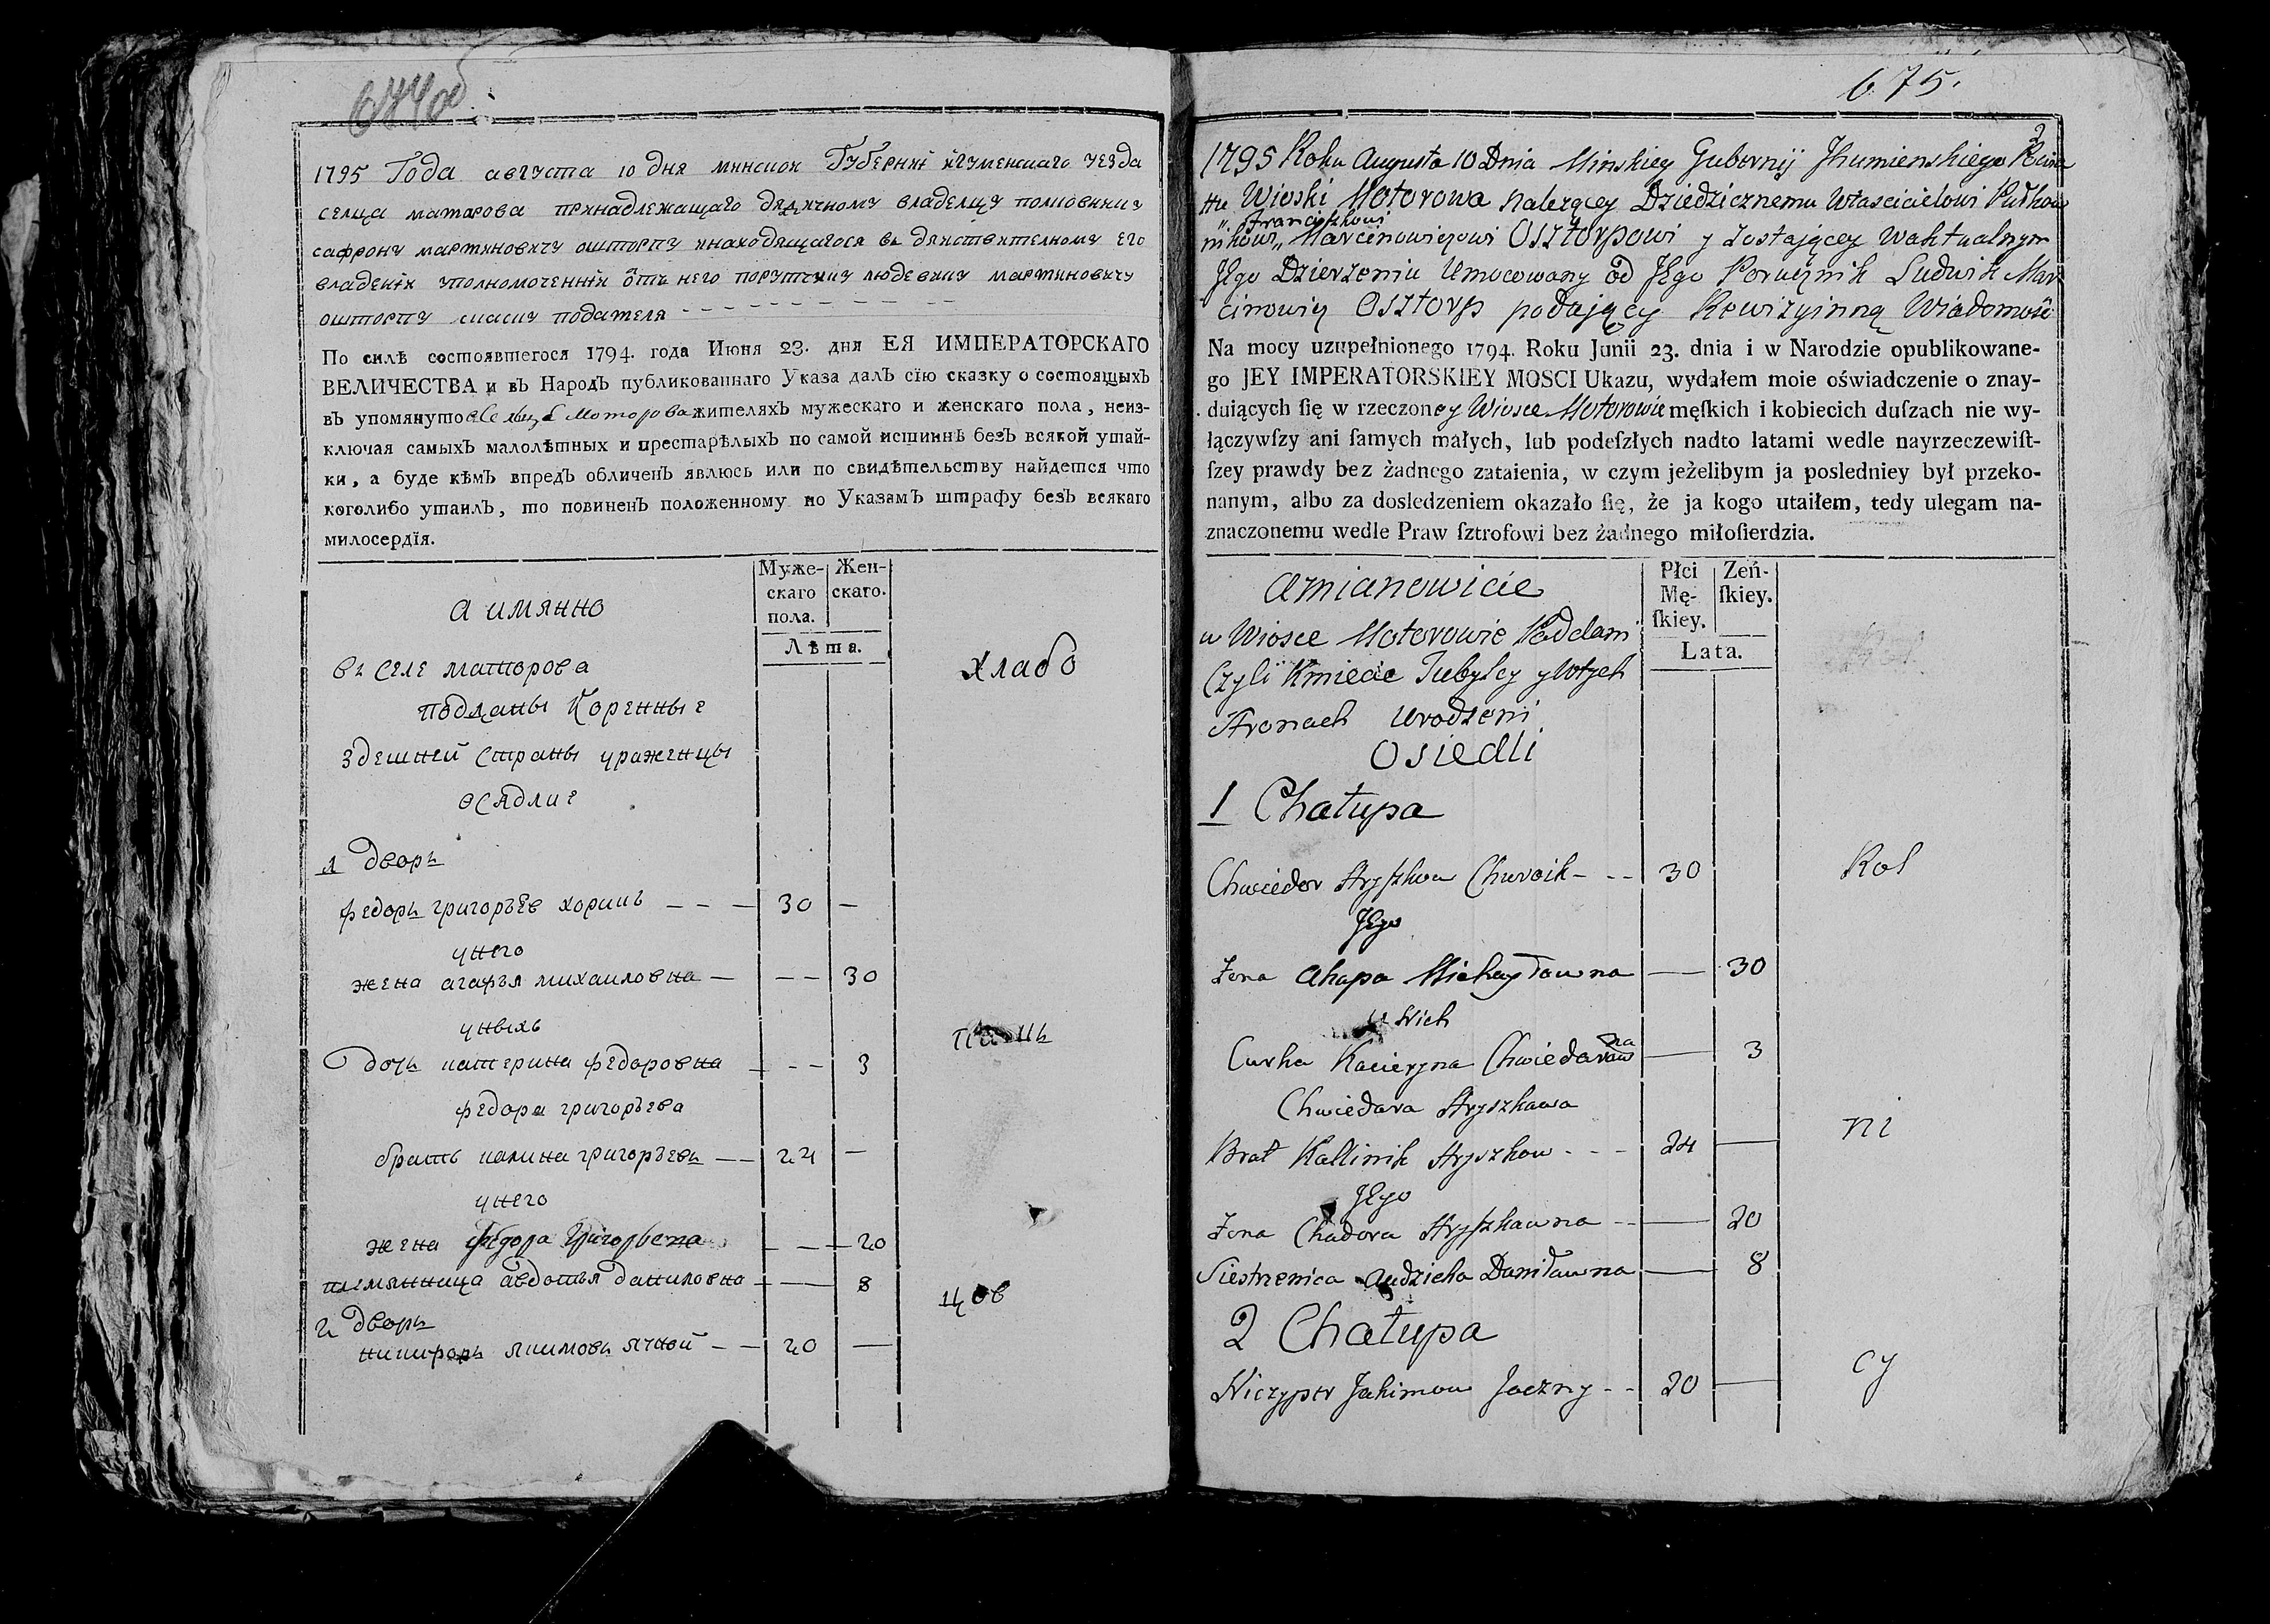 674об
1795 Года августа 10 дня минской Губерний игуменскаго уезда
селца маторова принадлежащаго дедичному владелцу полковнику
сафрону мартиновичу ошторпу инаходящагося въ действителному его
владений уполномоченний отъ него порутчику людевику мартиновичу
ошторпу подателя
По силѣ состоявшегося 1794. года Июня 23. дня ЕЯ ИМПЕРАТОРСКАГО
ВЕЛИЧЕСТВА и въ Народъ публикованнаго Указа далъ сїю сказку о состоящыхъ
въ упомянуто Селцѣ Моторова жителяхъ мужескаго и женскаго пола, неиз-
ключая самыхъ малолѣтныхъ и престарѣлыхъ по самой истиннѣ безъ всякой утай-
ки, а буде кѣмъ впредъ обличенъ явлюсь или по свидѣтельству найдется что
коголибо утаилъ, то повиненъ положенному по Указамъ штрафу безъ всякаго
милосердїя.
а имянно
Муже-
скаго
пола.
Жен-
скаго.
Лѣта.
въ селе маторова
подданы коренные
здешней страны уроженцы
осядлие
хлабо
1 дворъ
федоръ григорьев хорикъ — — — 30 —
унего
жена агафья михаиловна — — — 30
уныхъ
дочь катерина федоровна — — — 3
федора григорьева
братъ калина григорьевъ — — 24 —
унего
жена федора Григорьевна — — — 20
племянница авдотья даниловна — — 8
цов
2 дворъ
никифоръ якимовъ ячной — — 20 —
675.
2
1795 Roku Augusta 10 Dnia Minskiey Gubernij Jhumienskiego Powia
ttu Wioski Motorowa nalezącey Dziedzicznemu Własccicielowi Pułkow
„Franciszkowi
nikowi „Marcinowiczowi Osztorpowi y zostającey waktualnym
JEgo Dzierzeniu Umocowany od JEgo Porucznik Ludwik Mar
cinowicz Osztorp podający Rewizyinną Wiadomość
Na mocy uzupełnionego 1794. Roku Junii 23. dnia i w Narodzie opublikowane-
go JEY IMPERATORSKIEY MOSCI Ukazu, wydałem moie oświadczenie o znay-
duiących ſię w rzeczoney Wiosce Motorowie męſkich i kobiecich duſzach nie wy-
łączywſzy ani ſamych małych, lub podeſzłych nadto latami wedle nayrzeczewiſt-
ſzey prawdy bez żadnego zataienia, w czym jeżelibym ja posledniey był przeko-
nanym, albo za dosledzeniem okazało ſię, że ja kogo utaiłem, tedy ulegam na-
znaczonemu wedle Praw ſztrofowi bez żadnego miłoſierdzia.
amianowicie
Płci
Mę-
ſkiey.
Zeń-
ſkiey.
Lata.
w Wiosce Motorowie Poddani
Czyli Kmiecie Tubylcy ywtych
Stronach Urodzeni
Osiedli
1 Chałupa
Chwiedor Hryszkow Churcik - - - 30
Rol
JEgo
Żona Ahapa Michayłowna — 30
u Nich
Curka Kacieryna Chwiedarowna — 3
Chwiedara Hryszkawa
ni
Brat Kallinik Hryszkow - - - 24 —
JEgo
Żona Chadora Hryszkawna - - — 20
Siestrzenica Audzieha Daniławna — 8
2 Chałupa
cy
Niczypor Jakimow Jaczny - - 20 —